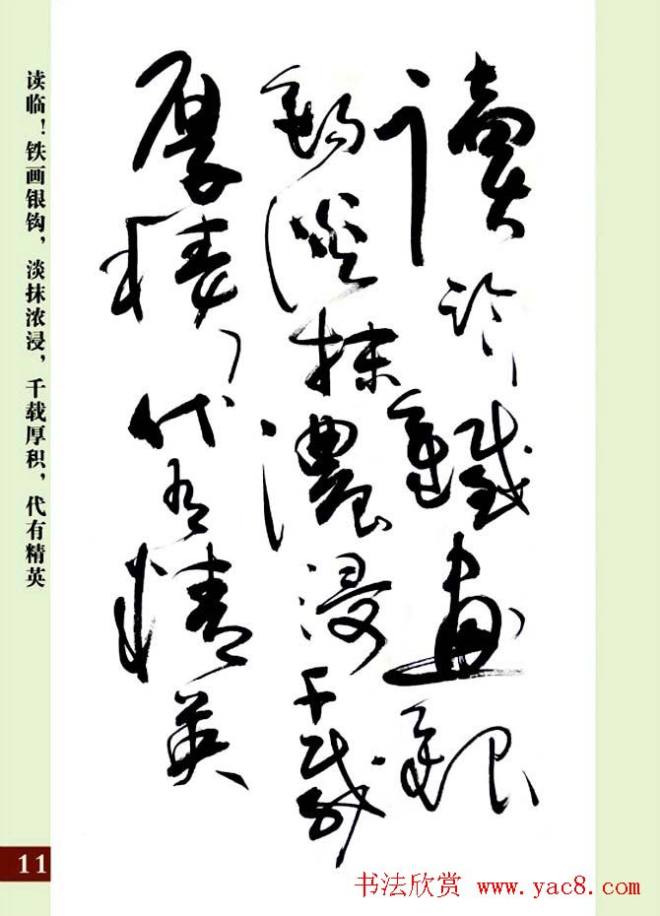 讀临鐵画銀
鈎淡抹濃浸千載
厚積代有精英
读临！铁画银钩，淡抹浓浸，千载厚积，代有精英
11
书法欣赏 www.yac8.com